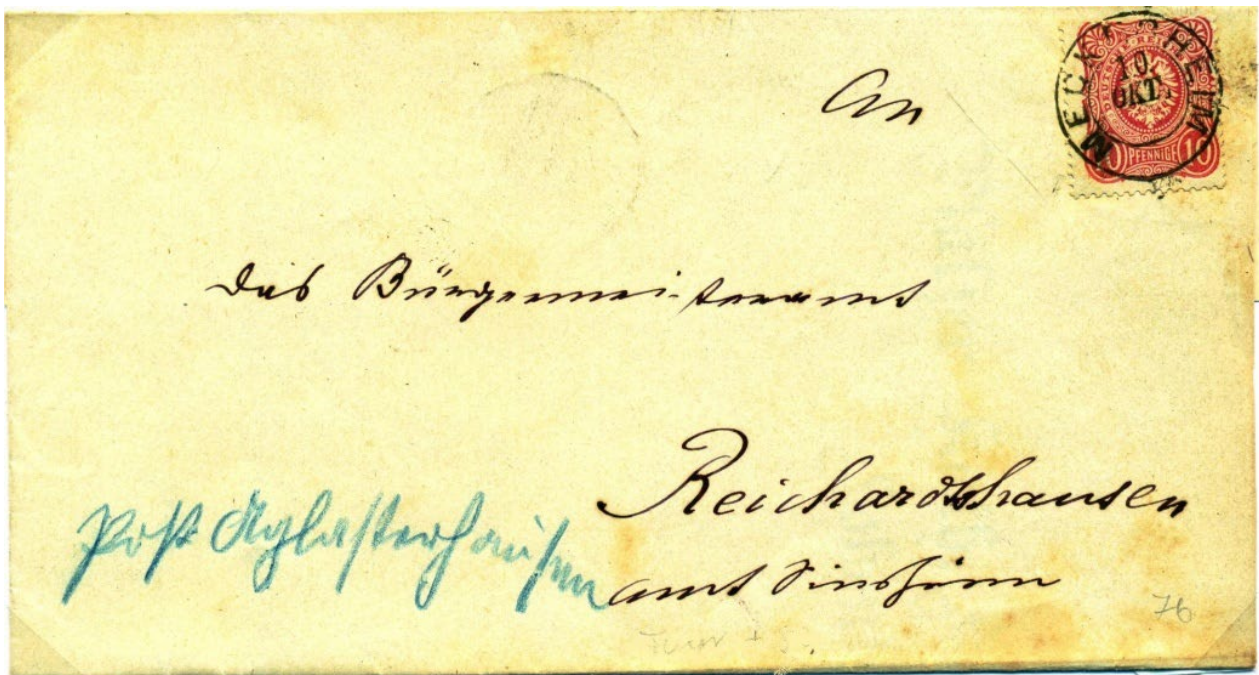 An
MECKESHEIM
10.
OKT.
DEUTSCHE REICHS
10 PFENNIGE 10
das Bürgermeisteramt
Reichardtshausen
Post Aglasterhausen
amt Sinsheim
76